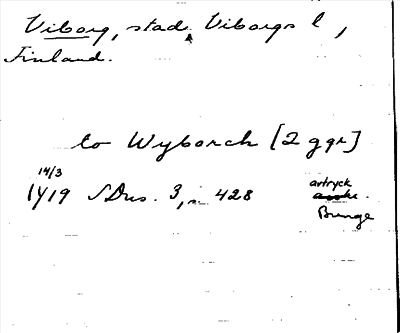 Viborg, stad, Viborgs l,
Finland.
to Wyborch [2 ggr]
14/3
1419 SDns. 3, n. 428
avtryck
Bunge